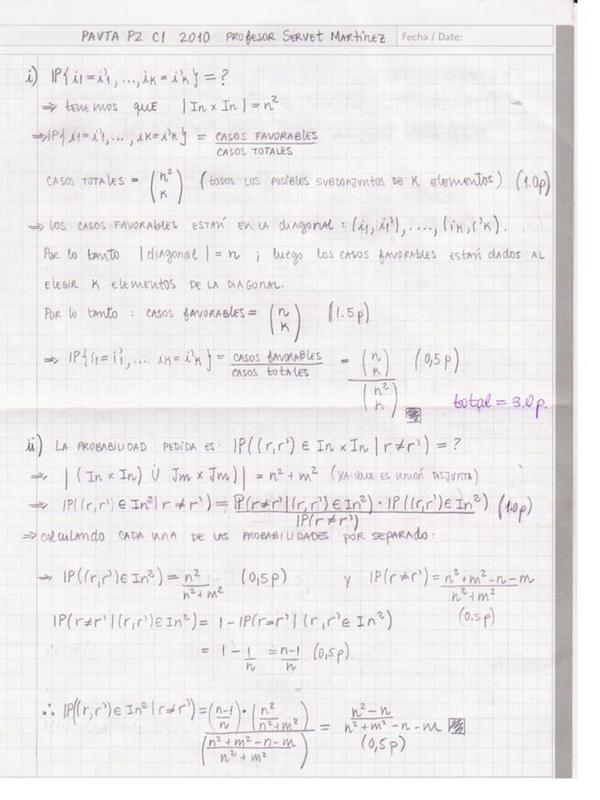 PAUTA P2 C1 2010 PROFESOR SERVET MARTÍNEZ Fecha / Date:
i) IP{i1=i'1, ..., iK=i'K} = ?
⇒ TENEMOS QUE |In x In| = n²
⇒ IP{i1=i'1, ..., iK=i'K} = CASOS FAVORABLES / CASOS TOTALES
CASOS TOTALES = (n² K) (TODOS LOS POSIBLES SUBCONJUNTOS DE K ELEMENTOS) (1.0p)
⇒ LOS CASOS FAVORABLES ESTAN EN LA DIAGONAL = (i1, i'1), ...., (iK, i'K).
POR lo tanto |diagonal| = n ; luego los casos favorables están dados AL
ELEGIR K ELEMENTOS DE LA DIAGONAL.
Por lo tanto : CASOS FAVORABLES = (n K) (1.5p)
⇒ IP{i1=i'1, .... iK=i'K} = CASOS FAVORABLES / CASOS TOTALES = (n K) / (n² K) (0,5p)
total = 3.0p.
ii) LA PROBABILIDAD PEDIDA ES: IP((r,r') ∈ In x In | r≠r') = ?
⇒ |(In x In) U (Jm x Jm)| = n² + m² (YA QUE ES UNIÓN DISJUNTA)
⇒ IP((r,r') ∈ In² | r≠r') = IP(r≠r' | (r,r') ∈ In²) · IP((r,r') ∈ In²) / IP(r≠r') (1.0p)
⇒ calculando CADA UNA DE LAS PROBABILIDADES POR SEPARADO:
⇒ IP((r,r') ∈ In²) = n² / n²+m² (0,5p) y IP(r≠r') = n²+m²-n-m / n²+m²
(0.5p)
IP(r≠r' | (r,r') ∈ In²) = 1 - IP(r=r' | (r,r' ∈ In²)
= 1 - 1/n = n-1 / n (0,5p)
∴ IP((r,r') ∈ In² | r≠r') = (n-1 / n) · (n² / n²+m²) / (n²+m²-n-m / n²+m²) = n²-n / n²+m²-n-m
(0,5p)